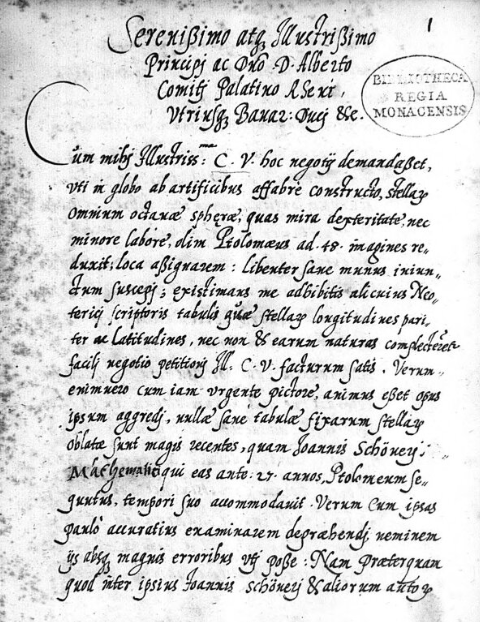 1
Sereniſsimo atq; Illustriſsimo
Principj ac Dño D. Alberto
Comitj Palatino Rhenj,
Vtriusq; Bauar: Ducj &c.
BIBLIOTHECA
REGIA
MONACENSIS
Cum mihj Illustriss:ma C. V. hoc negotij demandaßet,
vti in globo ab artificibus affabre constructo, stellaꝝ
omnium octauæ sphęræ, quas mira dexteritate, nec
minore labore, olim Ptolomæus ad. 48. imagines re-
duxit, loca aßignarem: libenter sane munus iniun-
ctum suscepj; existimans me adhibitis alicuius Neo-
tericj scriptoris tabulis quæ stellaꝝ longitudines pari-
ter ac latitudines, nec non & earum naturas complecterēt
facilj negotio petitionj Ill. C. V. facturum satis. Verum-
enimuero cum iam urgente pictore, animus eßet opus
ipsum aggredj, nullæ sanè tabulæ fixarum stellaꝝ
oblatæ sunt magis recentes, quam Ioannis Schönerj:
Mathematici qui eas ante. 27. annos, Ptolomeum se-
qutus, temporj suo accommodauit. Verum cum ipsas
paulò accuratius examinarem depræhendj neminem
ijs absq; magnis erroribus vtj poße: Nam præterquam
quod inter ipsius Ioannis Schönerj & aliorum autoꝝ